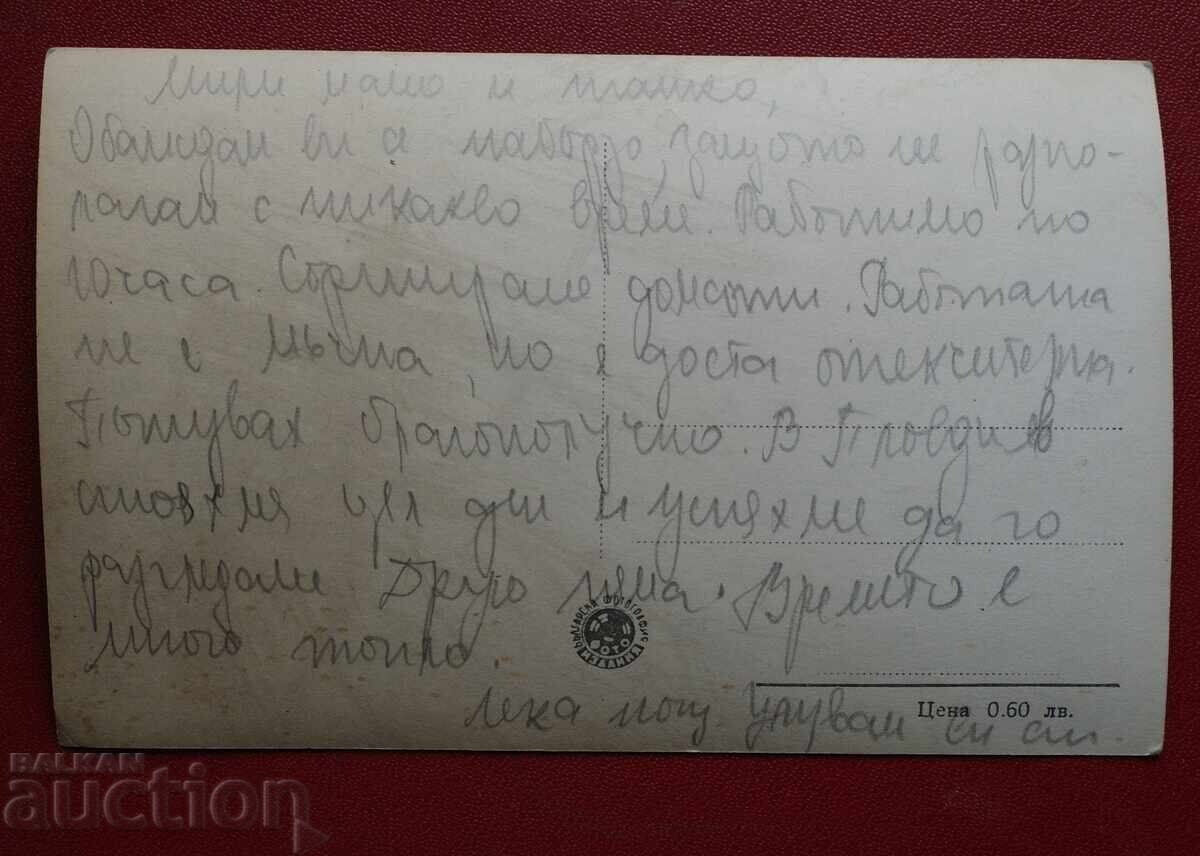 Мири мамо и татко,
Обаждам ви се набързо, защото не разпо-
лагам с никакво време. Работиме по
10 часа. Сортираме домати. Работата
не е мъчна, но е доста отекчителна.
Пътувах благополучно. В Пловдив
стояхме цял ден и успяхме да го
разгледаме. Друго няма. Времето е
много топло.
Лека нощ.
Цена 0.60 лв.
БЪЛГАРСКИ ФОТОГРАФИС ИЗДАНИЯ
ФОТО
BALKAN
auction